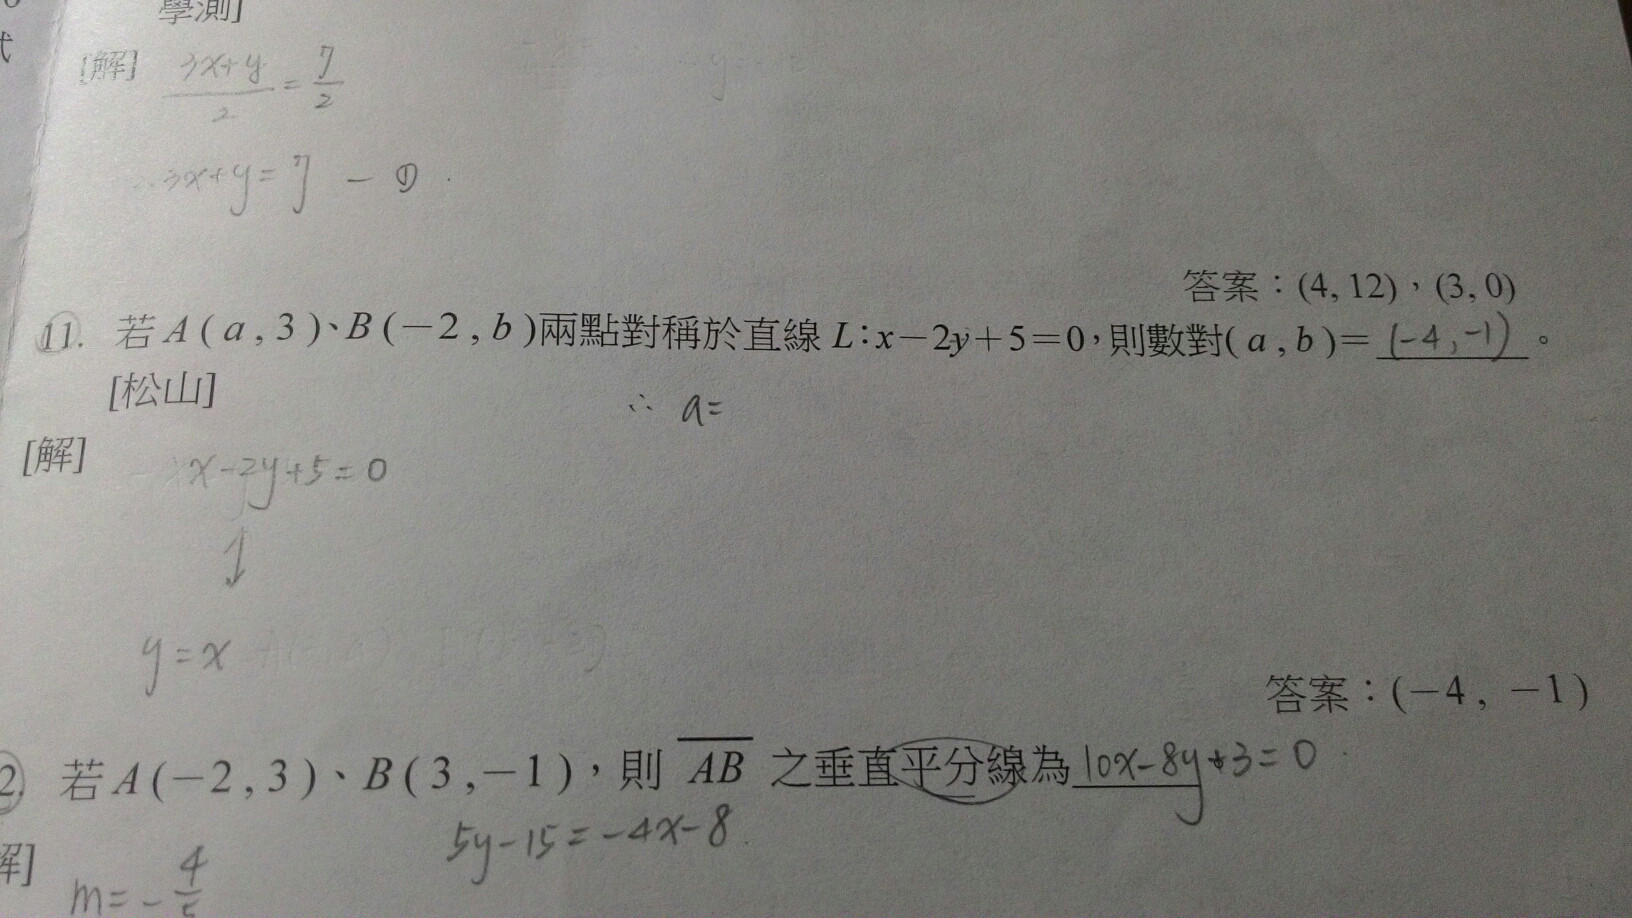 學測]
[解] 3x+y/2 = 7/2
3x+y=7 — ①
答案：(4, 12)，(3, 0)
11. 若 A ( a , 3 )、B (－2 , b )兩點對稱於直線 L：x－2y＋5＝0，則數對( a , b )＝ (-4,-1) 。
[松山]
∴ a=
[解] x-2y+5=0
↕
y=x
答案：(－4 , －1 )
2. 若 A (－2 , 3 )、B ( 3 , －1 )，則 AB 之垂直平分線為 10x-8y+3=0
5y-15=-4x-8
解]
m=-4/5